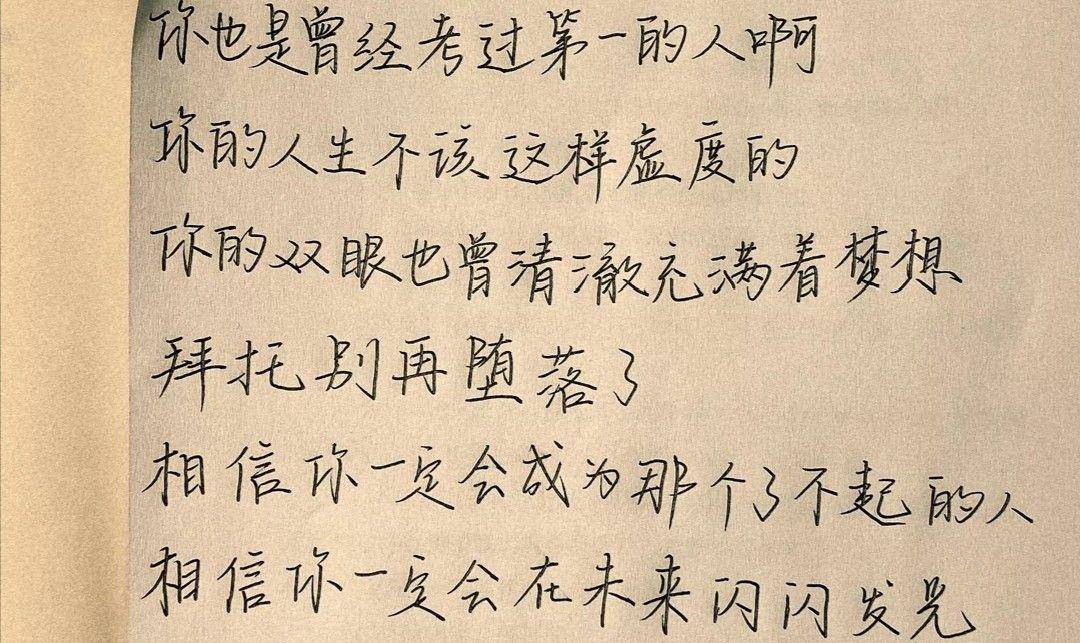 你也是曾经考过第一的人啊
你的人生不该这样虚度的
你的双眼也曾清澈充满着梦想
拜托别再堕落了
相信你一定会成为那个了不起的人
相信你一定会在未来闪闪发光